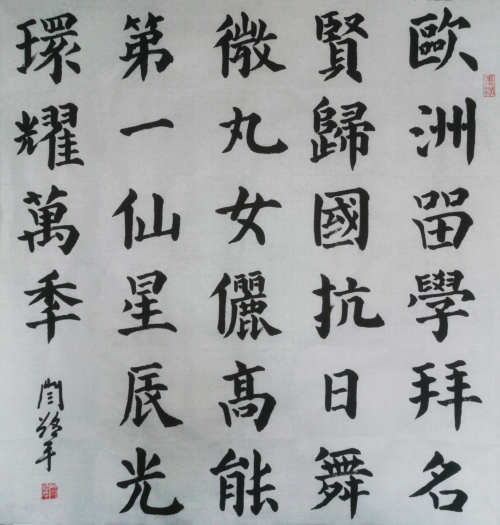 歐洲㽞學拜名
賢歸國抗日舞
微丸女儷髙能
第一仙星辰光
環耀萬秊
閆 平